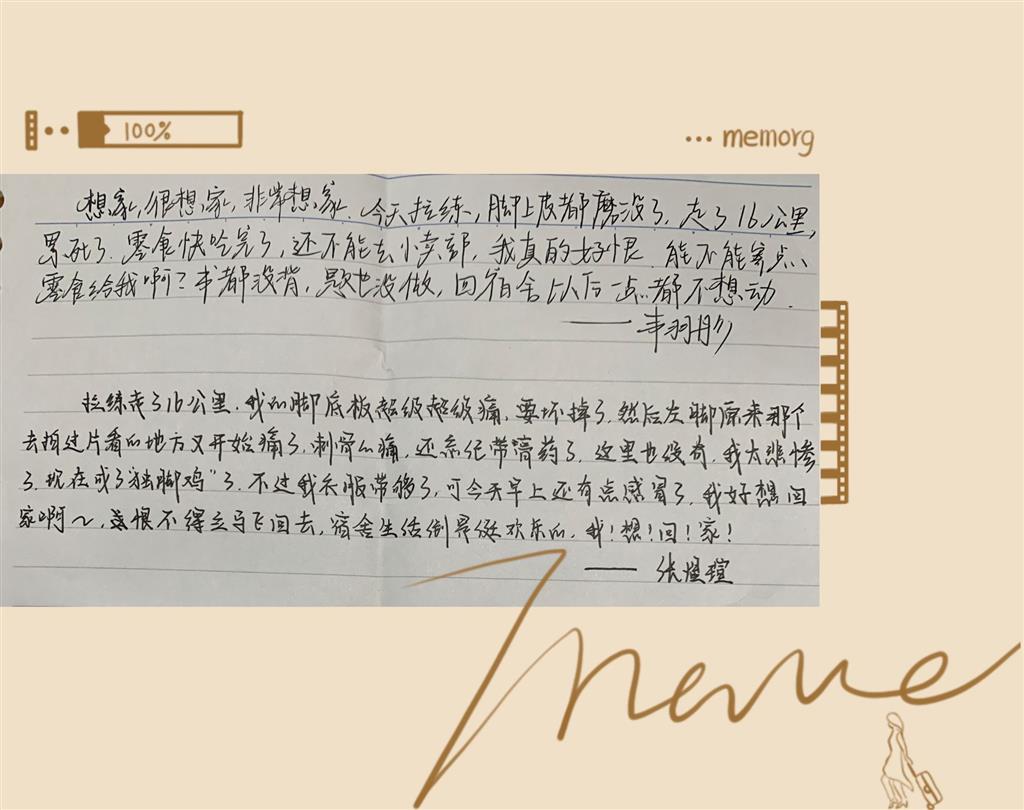 100%
... memorg
想家,很想家,非常想家.今天拉练,脚上皮都磨没了,走了16公里,
累死了.零食快吃完了,还不能去小卖部,我真的好恨.能不能寄点
零食给我啊?书都没背,题也没做,回宿舍以后一点都不想动.
——韦羽彤
拉练走了16公里.我的脚底板超级超级痛,要坏掉了.然后左脚原来那个
去拍过片看的地方又开始痛了.刺骨的痛,还忘记带膏药了.这里也没有.我太悲惨
了.现在成了"独脚鸡"了.不过我衣服带够了,可今天早上还有点感冒了.我好想回
家啊~,恨不得立马飞回去,宿舍生活倒是挺欢乐的.我!想!回!家!
——张煜瑄